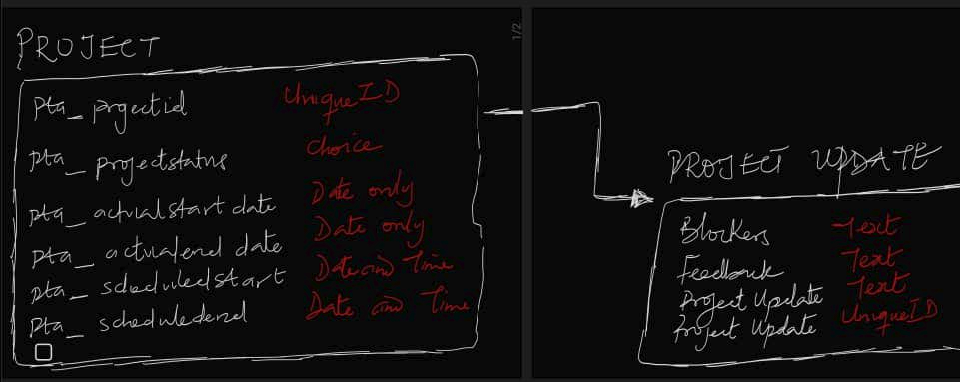 PROJECT
1/2
pta_ projectid UniqueID
pta_ projectstatus Choice
pta_ actualstart date Date only
pta_ actualend date Date only
pta_ scheduledstart Date and Time
pta_ scheduledend Date and Time
PROJECT UPDATE
Blockers Text
Feedback Text
Project Update Text
Project Update UniqueID